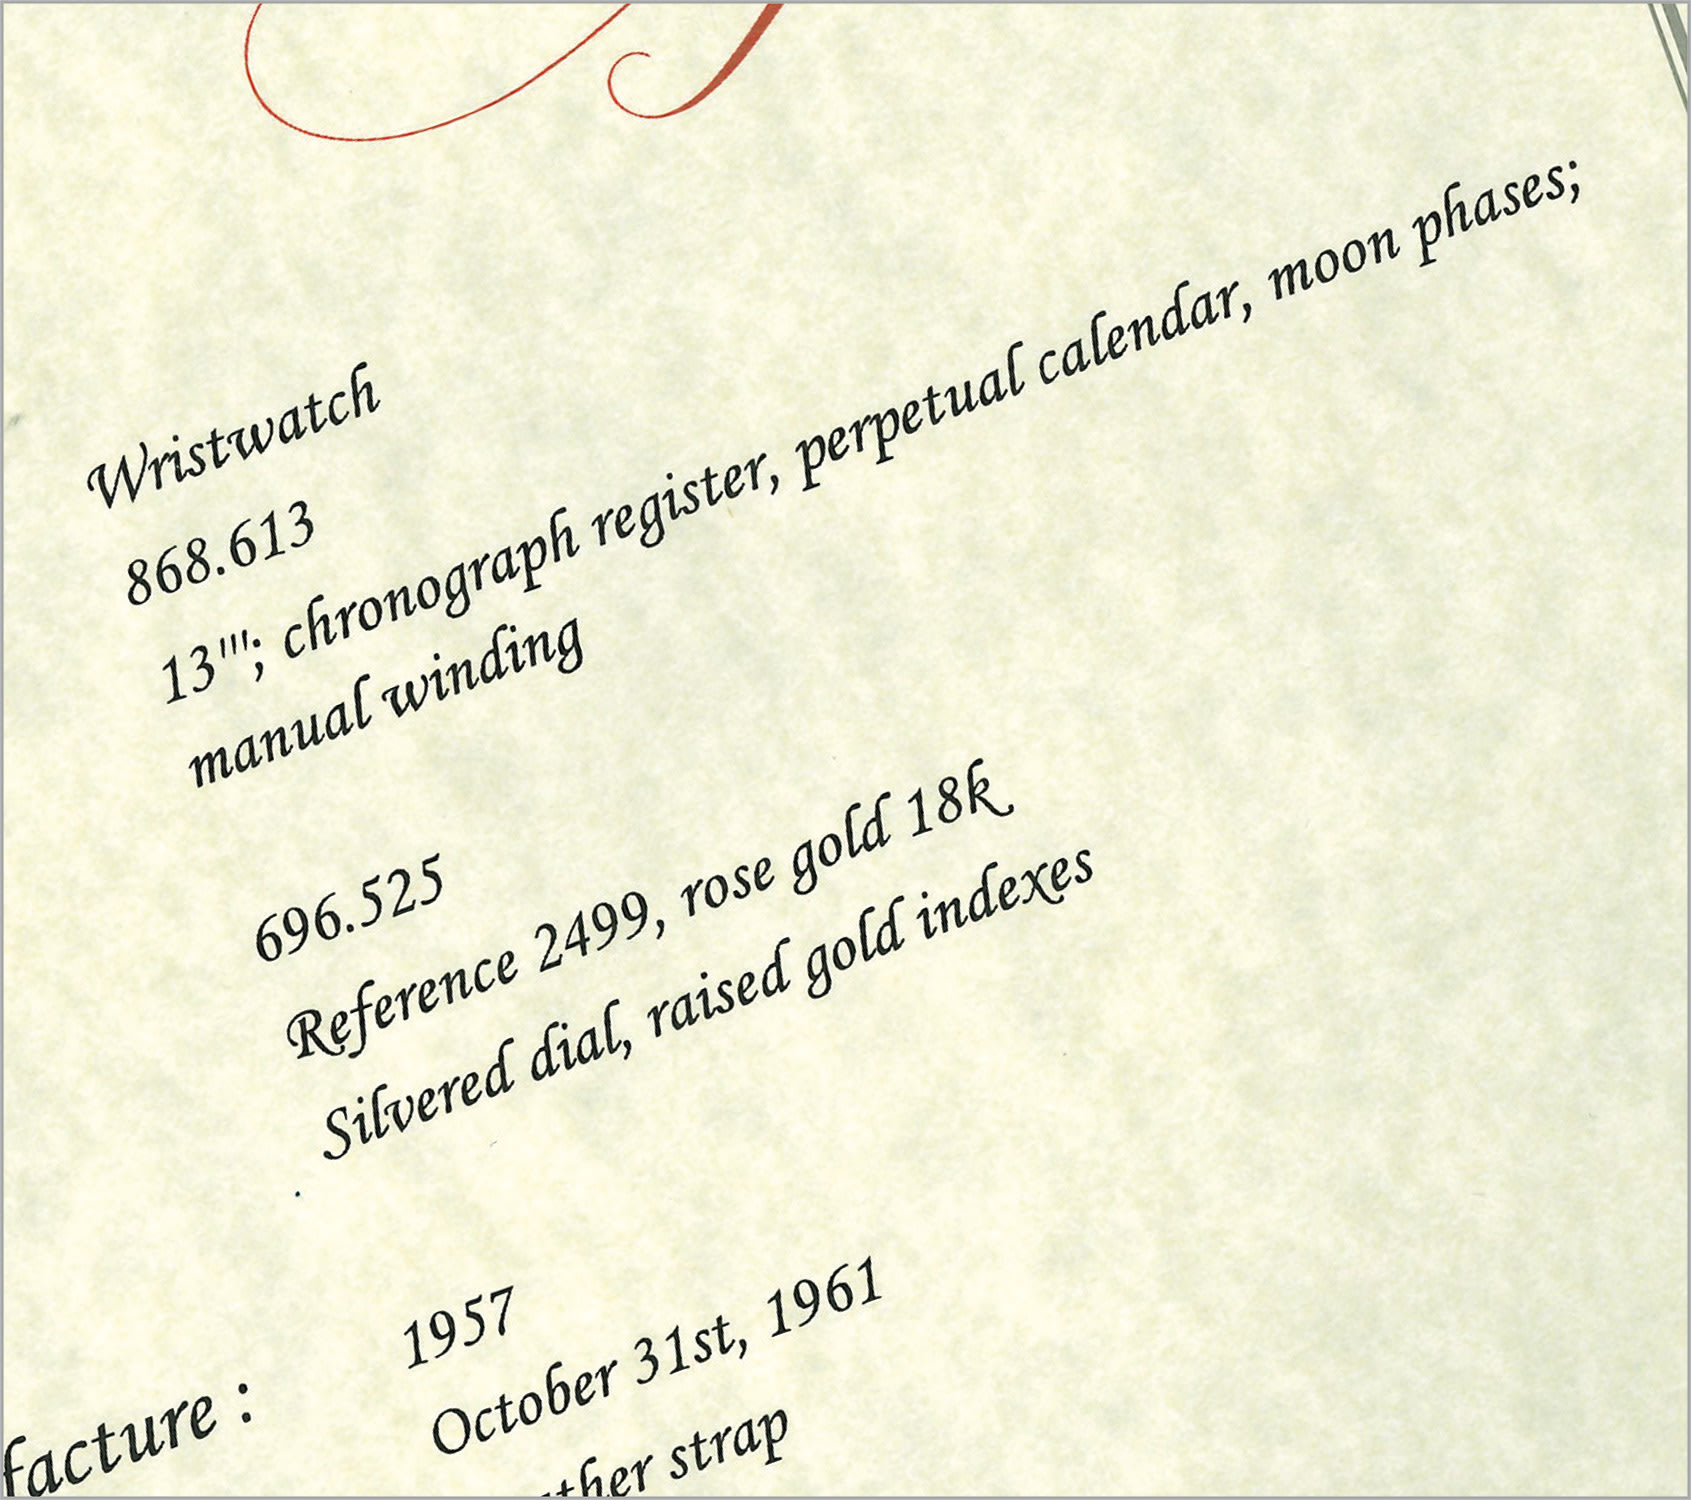 Wristwatch
868.613
13'''; chronograph register, perpetual calendar, moon phases;
manual winding
696.525
Reference 2499, rose gold 18k
Silvered dial, raised gold indexes
1957
facture :
October 31st, 1961
strap